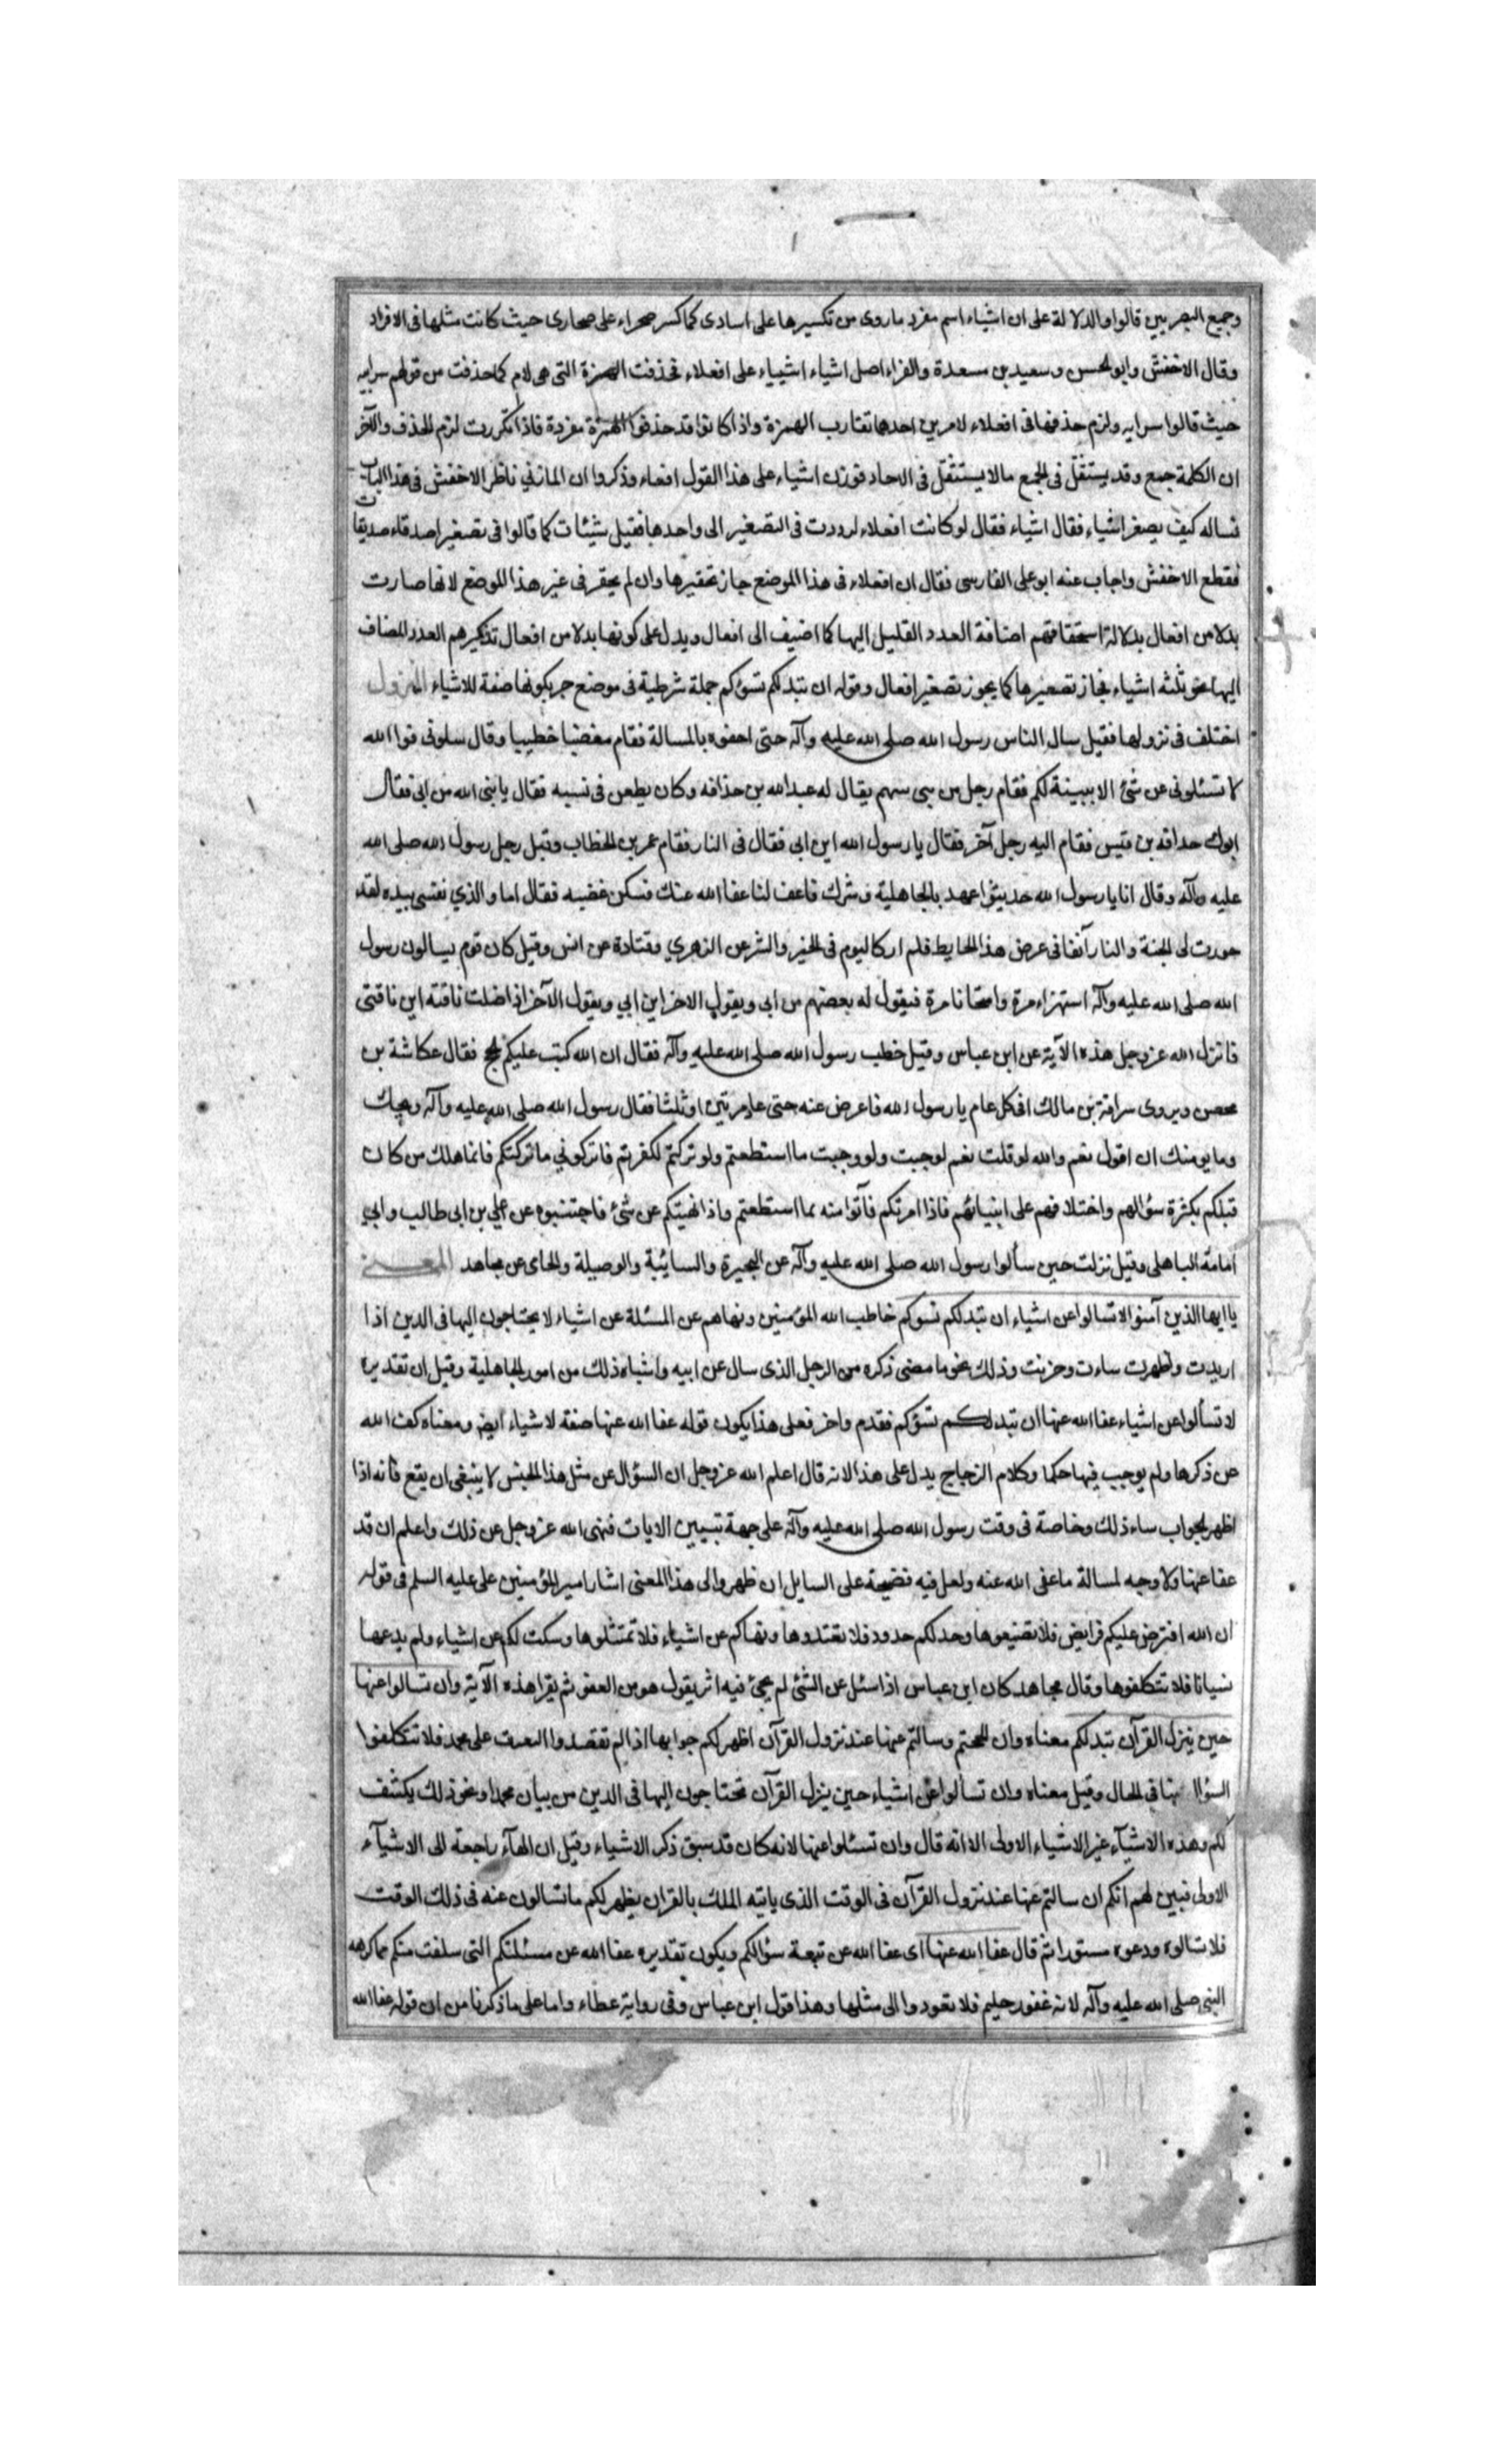 وجميع البصريين قالوا والدلالة على ان اشياء اسم مفرد ما روى من تكسيرها على اساوى كما كسر صحراء على صحارى حيث كانت مثلها فى الافراد
وقال الاخفش وابو الحسن وسعيد بن مسعدة والفراء اصل اشياء اشيياء على افعلاء فحذفت الهمزة التى هى لام كما حذفت من قولهم سوايه
حيث قالوا سوايه ولزم حذفها فى افعلاء لامرين احدهما تقارب الهمزة واذا كانوا قد حذفوا الهمزة مفردة فاذا تكررت لزم الحذف والآخر
ان الكلمة جمع وقد يستثقل فى الجمع مالا يستثقل فى الاحاد فوزن اشياء على هذا القول افعاء وذكروا ان المازني ناظر الاخفش فى هذا الباب
فساله كيف يصغر اشياء فقال اشياء فقال لو كانت افعلاء لرددت فى التصغير الى واحدها فقيل شيئات كما قالوا فى تصغير اصدقاء صديقات
فقطع الاخفش واجاب عنه ابو على الفارسى فقال ان افعلاء فى هذا الموضع جاز تحقيرها وان لم يحقر فى غير هذا الموضع لانها صارت
بدلا من افعال بدلالة استحقاقهم اضافة العدد القليل اليها كما اضيف الى افعال ويدل على كونها بدلا من افعال تذكيرهم العدد المضاف
اليها نحو ثلثه اشياء فجاز تصغيرها كما يجوز تصغير افعال وقوله ان تبد لكم تسؤكم جملة شرطية فى موضع جر بكونها صفة للاشياء النزول
اختلف فى نزولها فقيل سال الناس رسول الله صلى الله عليه وآله حتى احفوه بالمسالة فقام مغضبا خطيبا وقال سلونى فوا الله
لا تسئلونى عن شئ الا بينة لكم فقام رجل من بنى سهم يقال له عبد الله بن حذافه وكان يطعن فى نسبه فقال يا نبى الله من ابى فقال
ابوك حذافه بن قيس فقام اليه رجل آخر فقال يا رسول الله اين ابى فقال فى النار فقام عمر بن الخطاب وقبل رجل رسول الله صلى الله
عليه وآله وقال انا يا رسول الله حديثوا عهد بالجاهلية وشرك فاعف لنا عفا الله عنك فسكن غضبه فقال اما والذي نفسى بيده لقد
صورت لى الجنة والنار آنفا فى عرض هذا الحايط فلم ار كاليوم فى الخير والشر عن الزهري وقتادة عن انس وقيل كان قوم يسالون رسول
الله صلى الله عليه وآله استهزاء مرة وامتحانا مرة فيقول له بعضهم من ابى ويقول الاخر اين ابي ويقول الآخر اذا ضلت ناقته اين ناقتى
فانزل الله عز وجل هذه الآية عن ابن عباس وقيل خطب رسول الله صلى الله عليه وآله فقال ان الله كتب عليكم الحج فقال عكاشة بن
محصن ويروى سراقة بن مالك افى كل عام يا رسول الله فاعرض عنه حتى عاد مرتين او ثلثا فقال رسول الله صلى الله عليه وآله ويحك
وما يومنك ان اقول نعم والله لو قلت نعم لوجبت ولو وجبت ما استطعتم ولو تركتم لكفرتم فاتركوني ما تركتكم فانما هلك من كان
قبلكم بكثرة سؤالهم واختلافهم على انبيائهم فاذا امرتكم فآتوا منه بما استطعتم واذا نهيتكم عن شئ فاجتنبوه عن علي بن ابى طالب وابي
امامة الباهلى وقيل نزلت حين سألوا رسول الله صلى الله عليه وآله عن البحيرة والسائبة والوصيلة والحامى عن مجاهد المعنى
يا ايها الذين آمنوا لا تسالوا عن اشياء ان تبد لكم تسوكم خاطب الله المؤمنين ونهاهم عن المسئلة عن اشياء لا يحتاجون اليها فى الدين اذا
ابديت واظهرت ساءت وحزنت وذلك نحو ما مضى ذكره من الرجل الذى سال عن ابيه واشباه ذلك من امور الجاهلية وقيل ان تقديره
لا تسألوا عن اشياء عفا الله عنها ان تبد لكم تسؤكم فقدم واخر فعلى هذا يكون قوله عفا الله عنها صفة لاشياء ايض ومعناه كف الله
عن ذكرها ولم يوجب فيها حكما وكلام الزجاج يدل على هذا لانه قال اعلم الله عز وجل ان السؤال عن مثل هذا الجنس لا ينبغى ان يقع فانه اذا
اظهر الجواب ساء ذلك وخاصة فى وقت رسول الله صلى الله عليه وآله على جهة تبيين الايات فنهى الله عز وجل عن ذلك واعلم ان قد
عفا عنها ولا وجه لمسالة ما عفى الله عنه ولعل فيه فضيحة على السايل ان ظهر والى هذا المعنى اشار امير المؤمنين على عليه السلم فى قوله
ان الله افترض عليكم فرايض فلا تضيعوها وحد لكم حدود فلا تعتدوها ونهاكم عن اشياء فلا تمتثلوها وسكت لكم عن اشياء ولم يدعها
نسيانا فلا تتكلفوها وقال مجاهد كان ابن عباس اذا سئل عن الشئ لم يجئ فيه اثر يقول هو من العفو ثم يقرا هذه الآية وان تسالوا عنها
حين ينزل القرآن تبد لكم معناه وان الححتم وسالتم عنها عند نزول القرآن اظهر لكم جوابها اذا لم تقصدوا التعنت على محمد فلا تتكلفوا
السؤال عنها فى الحال وقيل معناه وان تسألوا عن اشياء حين ينزل القرآن تحتاجون اليها فى الدين من بيان محمد او نحو ذلك يكشف
لكم وهذه الاشيآء غير الاشياء الاولى الا انه قال وان تسئلوا عنها لانه كان قد سبق ذكر الاشياء وقيل ان الهآء راجعة الى الاشيآء
الاولى فبين لهم انكم ان سالتم عنها عند نزول القرآن فى الوقت الذى ياتيه الملك بالقران يظهر لكم ما تسالون عنه فى ذلك الوقت
فلا تسالوه ودعوه مستورا ثم قال عفا الله عنها اى عفا الله عن تبعة سؤالكم ويكون تقديره عفا الله عن مسئلتكم التى سلفت منكم مما كرهه
النبى صلى الله عليه وآله لانه غفور حليم فلا تعودوا الى مثلها وهذا قول ابن عباس وفى رواية عطاء واما على ما ذكرنا من ان قوله عفا الله